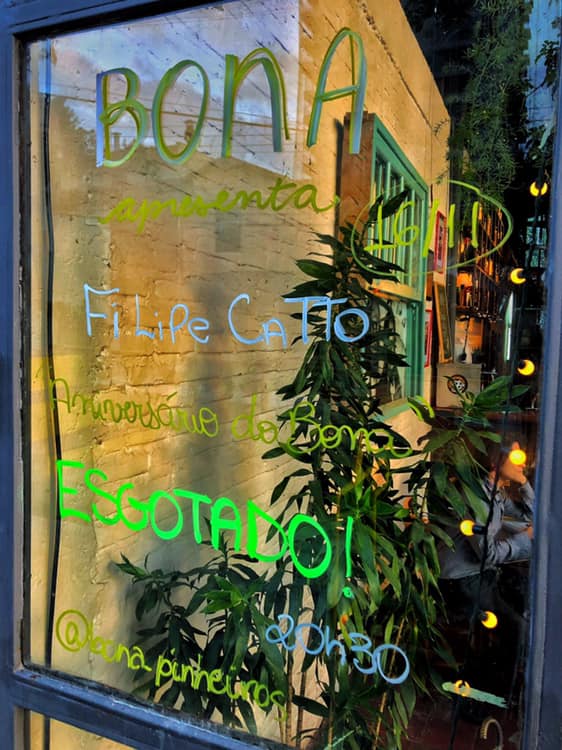 BONA
apresenta
16/11
FiLiPe CATTO
"Aniversário do Bona"
ESGOTADO!
20h30
@bona.pinheiros